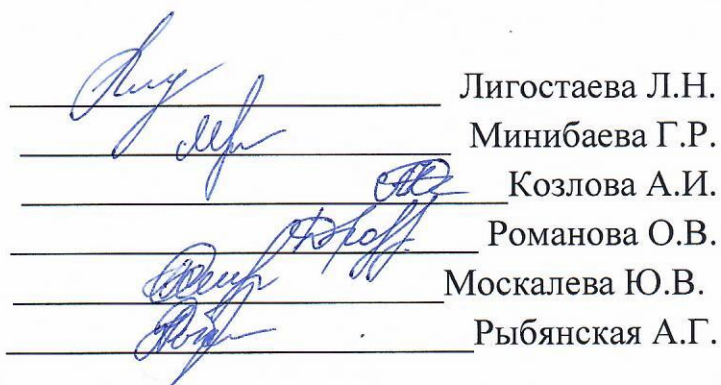 Лигостаева Л.Н.
Минибаева Г.Р.
Козлова А.И.
Романова О.В.
Москалева Ю.В.
Рыбянская А.Г.